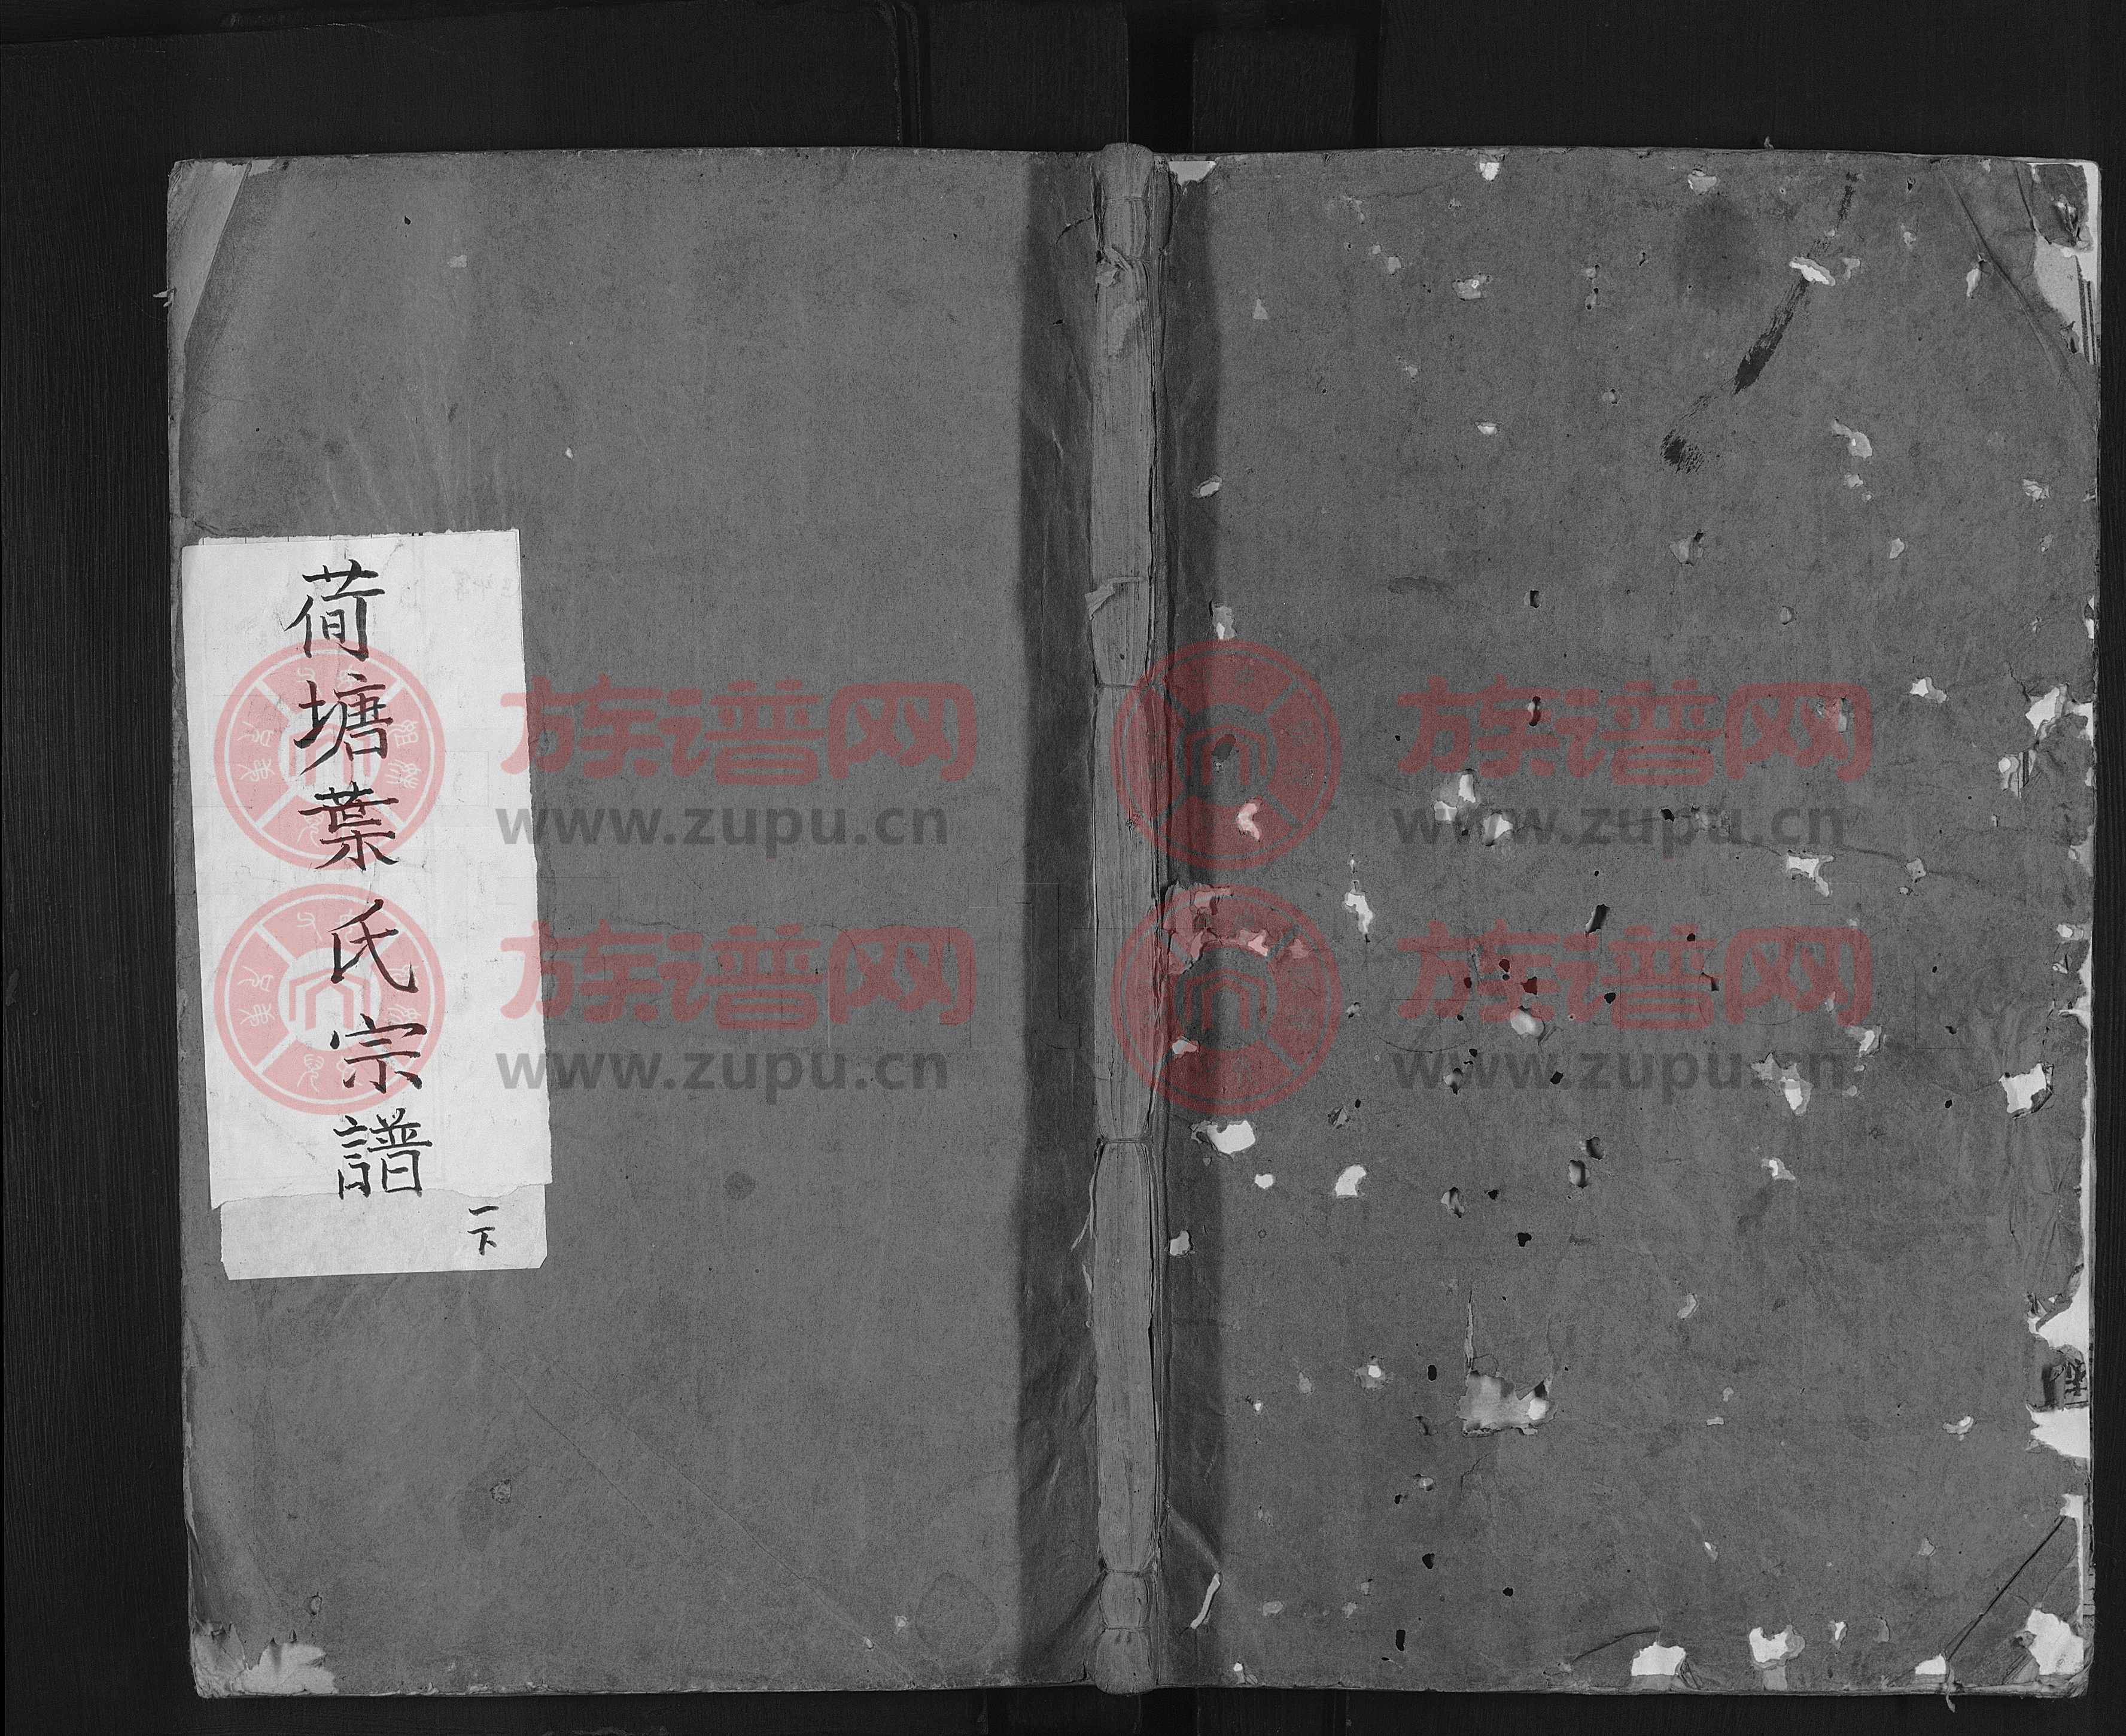 荷塘葉氏宗譜
一下
族谱网
www.zupu.cn
族谱网
www.zupu.cn
族谱网
www.zupu.cn
族谱网
www.zupu.cn